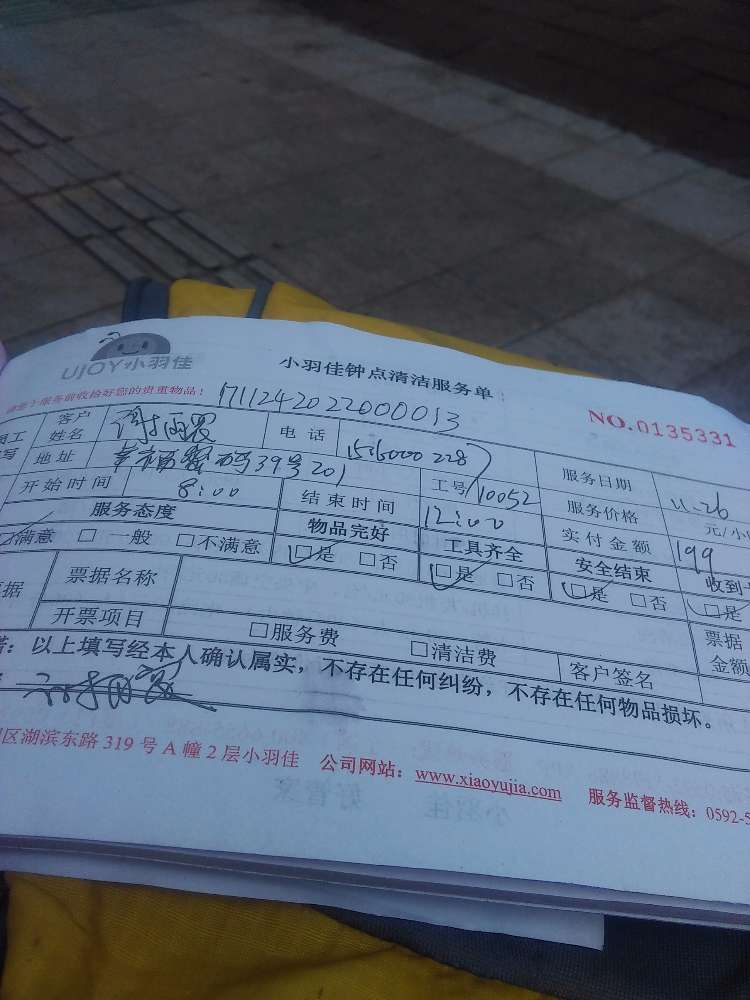 UJOY小羽佳
小羽佳钟点清洁服务单
NO.0135331
服务前收拾好您的贵重物品！
171124202200013
客户姓名 电话 服务日期 11-26
地址 39号201 工号 10052 服务价格 元/小
开始时间 8:00 结束时间 12:00 实付金额 199
服务态度 物品完好 工具齐全 安全结束 收到
满意 □一般 □不满意 □是 □否 □是 □否 □是 □否 □是
票据名称 票据金额
开票项目 □服务费 □清洁费 客户签名
以上填写经本人确认属实，不存在任何纠纷，不存在任何物品损坏。
区湖滨东路319号A幢2层小羽佳 公司网站：www.xiaoyujia.com 服务监督热线：0592-5